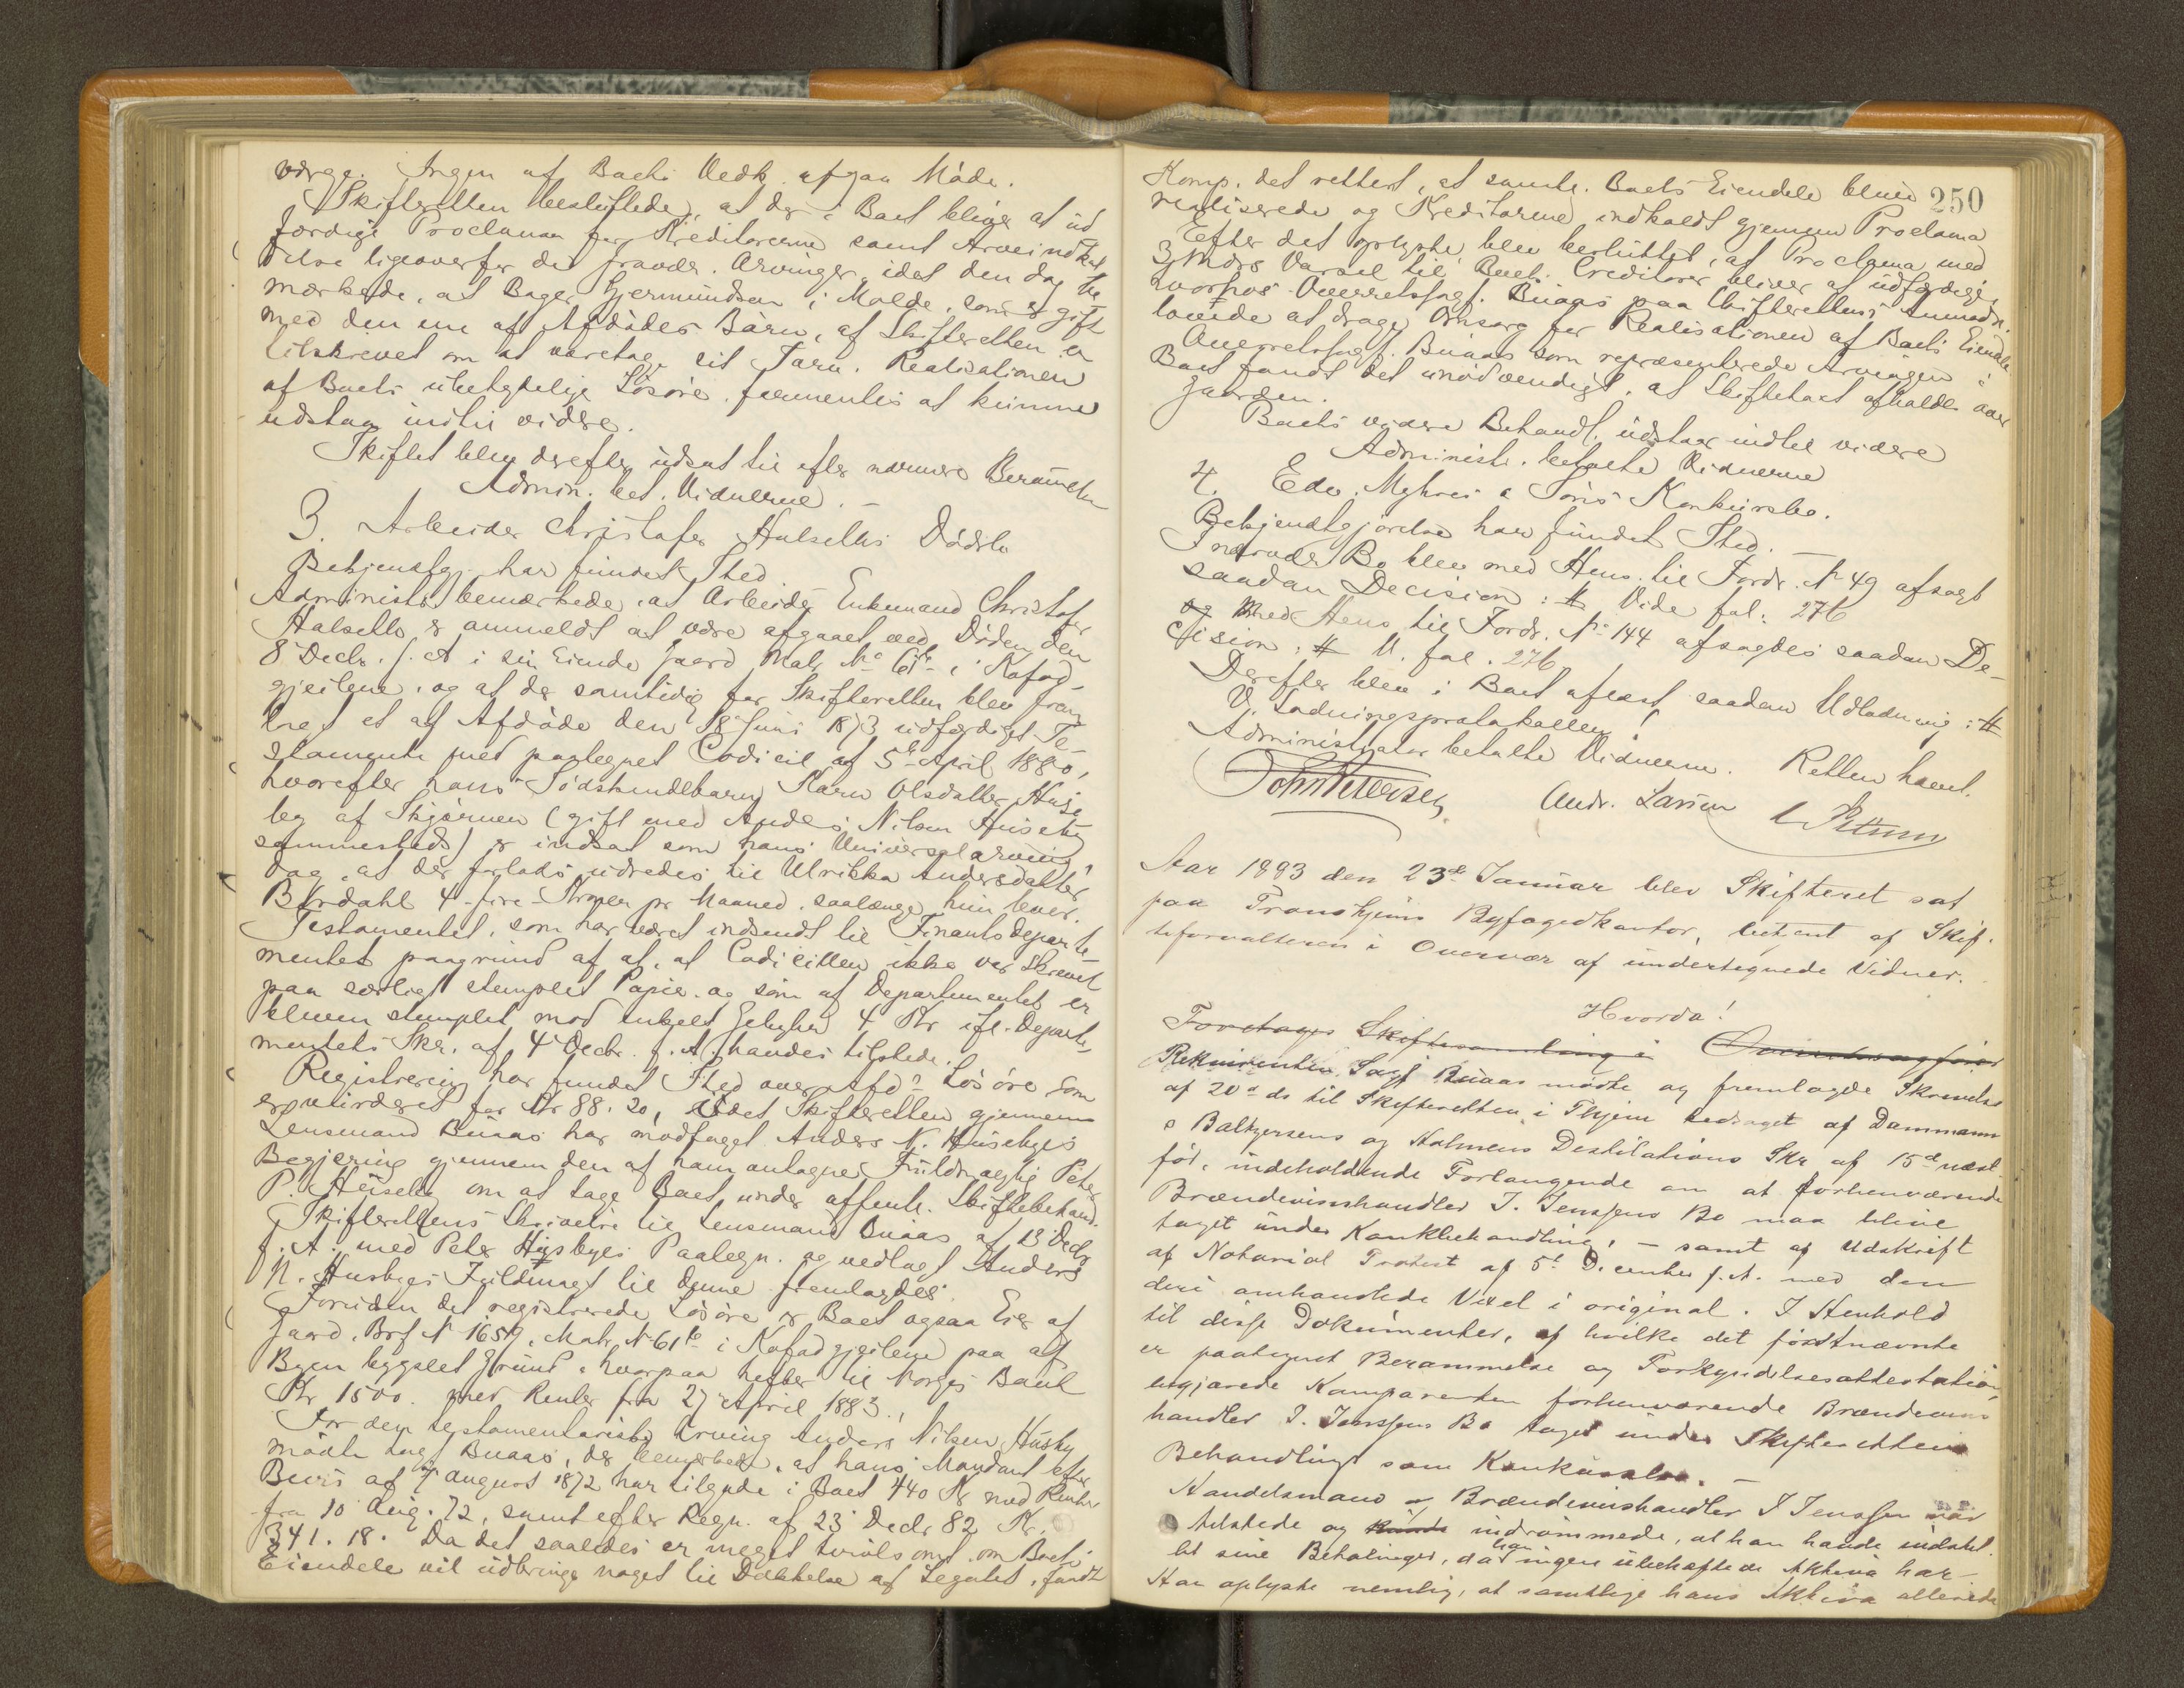 værge. Ingen af Boets Vedk. afgav Møde.
Skifteretten besluttede, at der i Boet bliver at ud
færdige Proclama for Kreditorerne samt Arveindkal
delse ligeoverfor de fravær. Arvinger, idet den dog be
mærkede, at Bager Gjermundsen i Molde, som er gift
med den ene af Afdødes Børn, af Skifteretten er
tilskrevet om at varetage sit Tarv. Realisationen
af Boets ubetydelige Løsøre formentes at kunne
udstaa indtil videre.
Skiftet blev derefter udsat til efter nærmere Berammelse
Admin. bet. Vidnerne.
3. Arbeider Christofer Halseths Dødsbo
Bekjendtgj. har fundet Sted
Administr. bemærkede, at Arbeider Enkemand Christofer
Halseth er anmeldt at være afgaaet ved Døden den
8 Decb. f. A i sin Eiende Gaard Matr. No 61 i Kofod-
gjeilene, og at der samtidig for Skifteretten blev frem
lagt et af Afdøde den 18 Juni 1873 udfærdiget Te-
stamente med paategnet Codicil af 5te April 1880,
hvorefter hans Sødskendebarn Karen Olsdatter Huse
by af Skjørnen (gift med Anders Nilsen Huseby
sammesteds) er indsat som hans Universalarving,
dog, at der forlods udredes til Ulrikka Andersdatter
Byrdahl 4 - fire - Kroner pr Maaned, saalænge hun lever.
Testamentet, som har været indsendt til Finantsdeparte-
mentet paagrund af at, at Codicillen ikke var skrevet
paa særligt stemplet Papir og som af Departementet er
bleven stemplet mod enkelt Gebyhr 4 Kr ifl. Departe-
mentets Skr. af 4 Decbr. f. A. havdes tilstede.
Registrering har fundet Sted over Afd. Løsøre som
er vurderet for Kr 88.20, idet Skifteretten gjennem
Lensmand Buaas har modtaget Anders N. Husebyes
Begjæring gjennem den af ham antagne Fuldmægtig Peter
P. Huseby om at tage Boet under offentl. Skiftebehand.
Skifterettens Skrivelse til Lensmand Buaas af 13 Decb
f. A. med Peter Husbyes Paategn. og vedlagt Anders
N. Husbyes Fuldmagt til denne fremlagdes.
Foruden det registrerede Løsøre er Boet ogsaa Eier af
Gaard, Brf No 1659, Matr. No 61 i Kofodgjeilene paa af
Byen bygslet Grund, hvorpaa hefter til Norges Bank
Kr 1500. med Renter fra 27 April 1883.
For den testamentariske Arving Anders Nilsen Husby
mødte Sagf Buaas, der bemærkede, at hans Mandant efter
Bevis af 7 August 1872 har tilgode i Boet 440 Kr med Renter
fra 10 Aug. 72, samt efter Regn. af 23 Decbr 82 Kr.
341.18. Da det saaledes er meget tvivlsomt om Boets
Eiendele vil udbringe noget til Dækkelse af Legatet, fandt
250
Komp. det rettest, at samtl. Boets Eiendele bliver
realiserede og Kreditorerne indkaldt gjennem Proclama
Efter det oplyste blev besluttet, at Proclama med
3 Mdrs Varsel til Boets Creditorer bliver at udfærdige
hvorhos Overretssagf. Buaas paa Skifterettens Anmodn.
lovede at drage Omsorg for Realisationen af Boets Eiendele
Overretssagf. Buaas som repræsenterede Arvingen i
Boet fandt det unødvendigt, at Skiftetaxt afholdes over
Gaarden.
Boets videre Behandl. udstaar indtil videre
Administr. betalte Vidnerne
4. Edv. Myhres & Søns Konkursbo.
Bekjendtgjørelse har fundet Sted.
I nærvær. Bo blev med Hens. til Fordr. No 49 afsagt
saadan Decision: # Vide fol: 276
og Med Hens til Fordr. No 144 afsagdes saadan De-
cision: # V. fol. 276
Derefter blev i Boet aflæst saadan Udlodning: #
V. Lodningsprotokollen!
Administrator betalte Vidnerne. Retten hævet.
John Petersen
Andr. Larsen
Aar 1893 den 23de Januar blev Skifteret sat
paa Trondhjems Byfogedkontor, betjent af Skif-
teforvalteren i Overvær af undertegnede Vidner.
Hvorda!
Foretoges Skiftesamling i Overretssagfører
Rekvirenten Sagf Buaas mødte og fremlagde Skrivelse
af 20de ds til Skifteretten i Thjem ledsaget af Dammann
& Baltzersens og Holmens Destilations Skr af 15de næst-
før. indeholdende Forlangende om at forhenværende
Brændevinshandler J. Jenssens Bo maa blive
taget under Konkbehandling, - samt af Udskrift
af Notarial Protest af 5te December f. A. med den
deri omhandlede Vexel i original. I Henhold
til disse Dokumenter, af hvilke det førstnævnte
er paategnet Berammelse og Forkyndelsesattestation,
begjærede Komparenten forhenværende Brændevins
handler J. Jenssens Bo taget under Skifterettens
Behandling som Konkursbo. -
Handelsmand og Brændevinshandler J Jenssen var
tilstede og kunde indrømmede, at han havde indstil-
let sine Betalinger, da han ingen ubehæftede Aktiva har-
Han oplyste nemlig, at samtlige hans Aktiva allerede